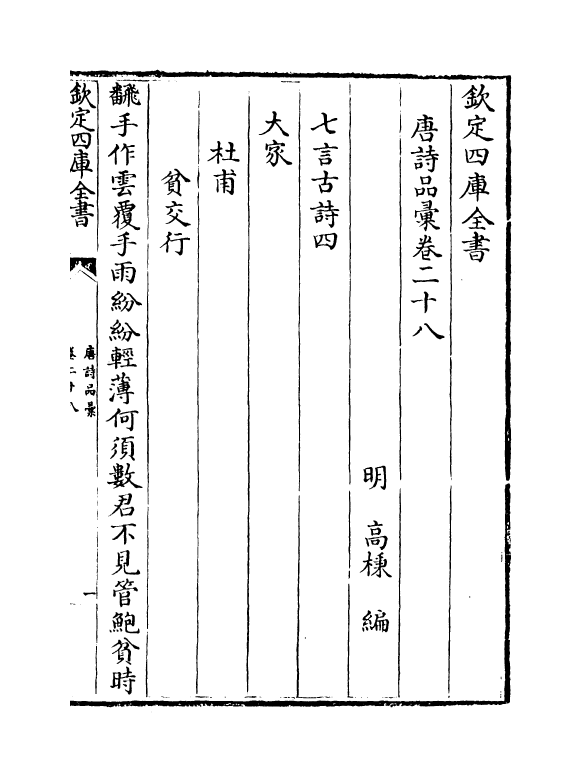 欽定四庫全書
唐詩品彙卷二十八
明 高棅 編
七言古詩四
大家
杜甫
貧交行
飜手作雲覆手雨紛紛輕薄何須數君不見管鮑貧時
欽定四庫全書
唐詩品彙
卷二十八
一